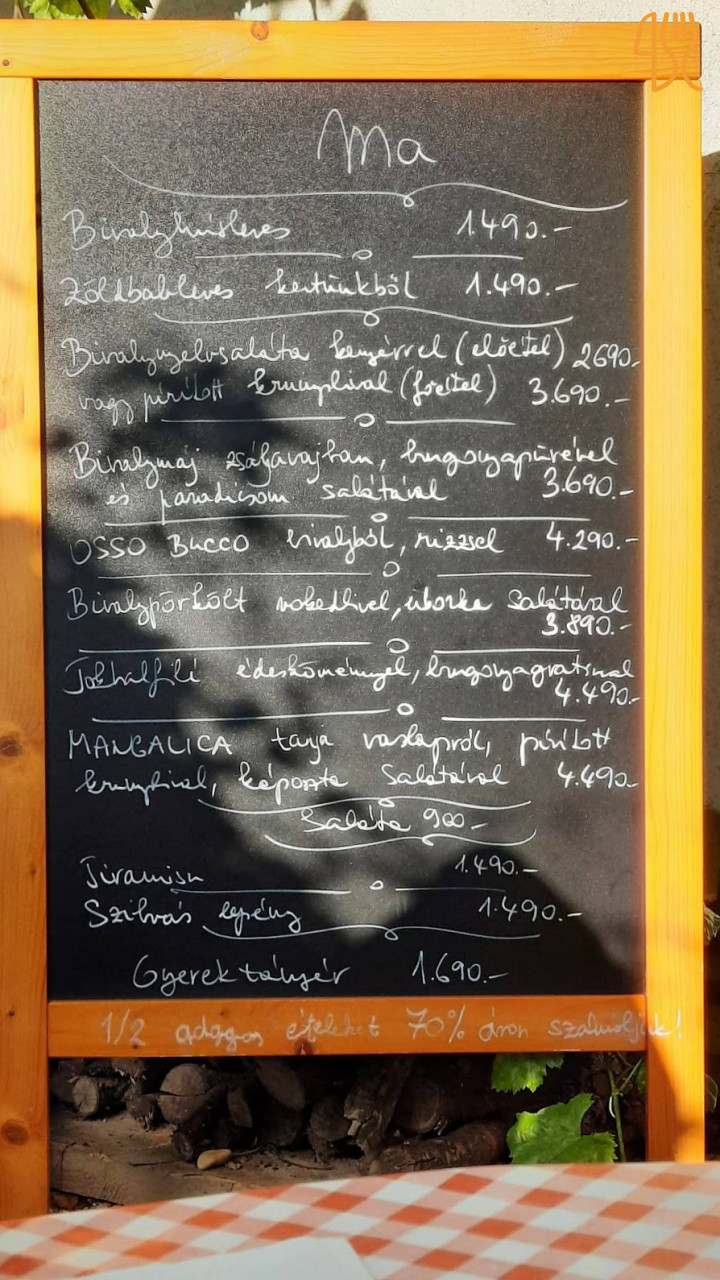 Ma
Bivalyhúsleves 1.490.-
Zöldbableves kertünkből 1.490.-
Bivalynyelvsaláta kenyérrel (előétel) 2690.-
vagy pirított krumplival (főétel) 3.690.-
Bivalymáj zsályavajban, burgonyapürével
és paradicsom salátával 3.690.-
OSSO BUCCO bivalyból, rizzsel 4.290.-
Bivalypörkölt nokedlivel, uborka salátával
3.890.-
Tőkehalfilé édesköménnyel, burgonyagratinnal
4.490.-
MANGALICA tarja vaslapról, pirított
krumplival, káposzta salátával 4.490.-
Saláta 900.-
Tiramisu 1.490.-
Szilvás lepény 1.490.-
Gyerek tányér 1.690.-
1/2 adagos ételeket 70% áron számoljuk!